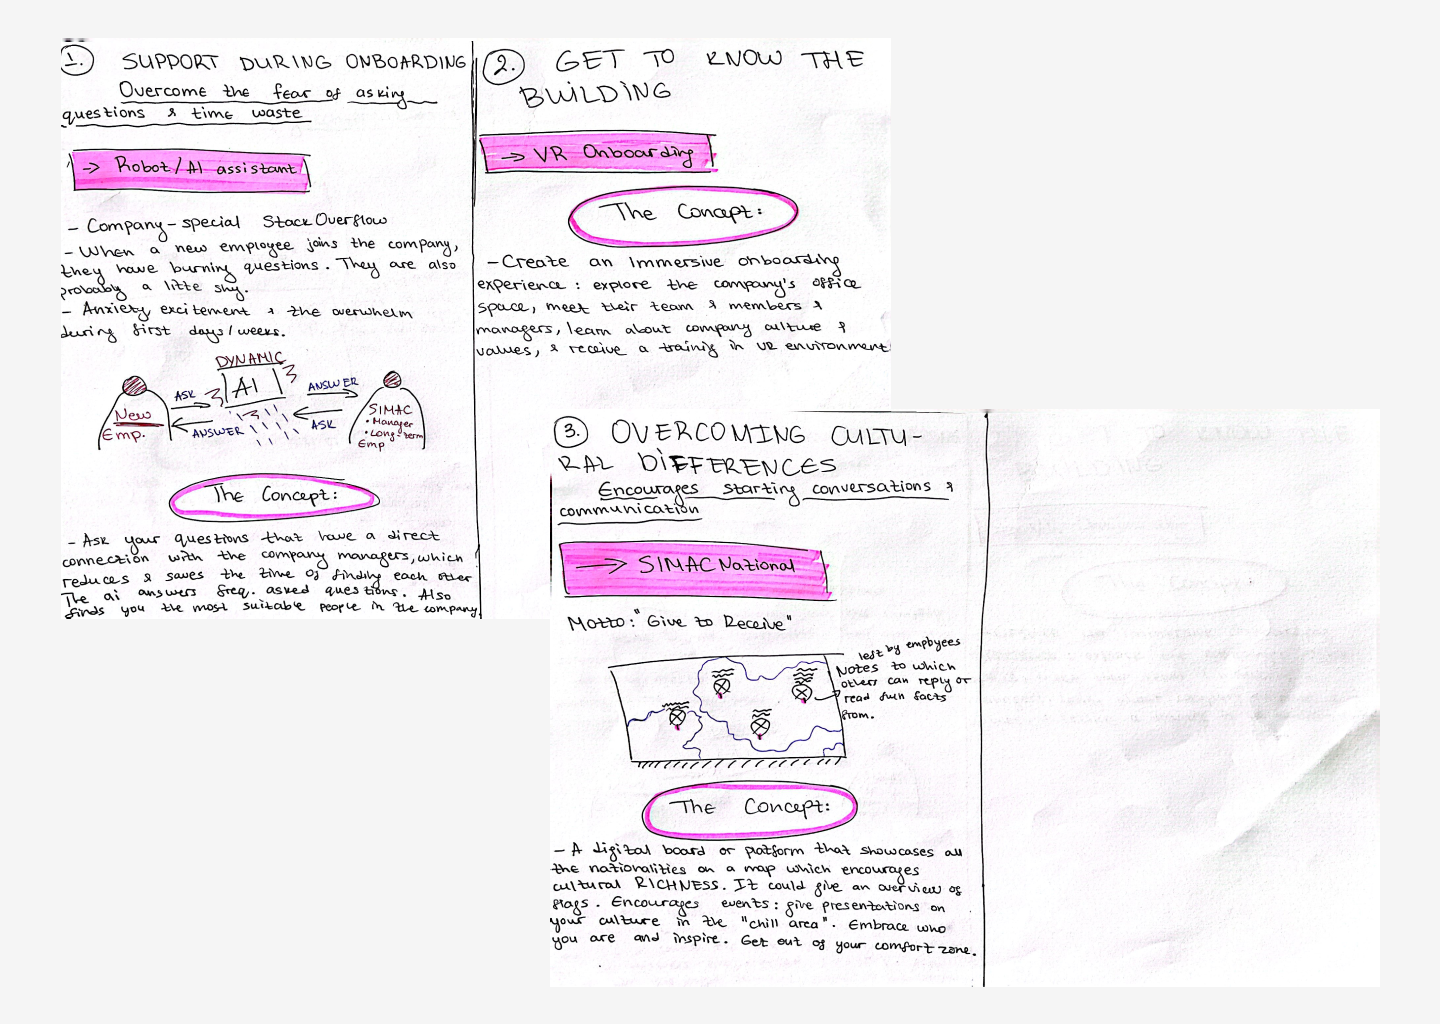 1. SUPPORT DURING ONBOARDING
Overcome the fear of asking
questions & time waste
→ Robot/AI assistant
- Company-special StackOverflow
- When a new employee joins the company,
they have burning questions. They are also
probably a litte shy.
- Anxiety, excitement & the overwhelm
during first days/weeks.
DYNAMIC
AI
ASK
ANSWER
ANSWER
ASK
New
Emp.
SIMAC
• Manager
• Long-term
Emp
The Concept:
- Ask your questions that have a direct
connection with the company managers, which
reduces & saves the time of finding each other
The ai answers freq. asked questions. Also
finds you the most suitable people in the company.
2. GET TO KNOW THE
BUILDING
→ VR Onboarding
The Concept:
- Create an Immersive onboarding
experience: explore the company's office
space, meet their team & members &
managers, learn about company culture &
values, & receive a training in VR environment
3. OVERCOMING CULTU-
RAL DIFFERENCES
Encourages starting conversations &
communication
→ SIMAC National
Motto: "Give to Receive"
left by employees
Notes to which
others can reply or
read fun facts
from.
The Concept:
- A digital board or platform that showcases all
the nationalities on a map which encourages
cultural RICHNESS. It could give an overview of
flags. Encourages events: give presentations on
your culture in the "chill area". Embrace who
you are and inspire. Get out of your comfort zone.